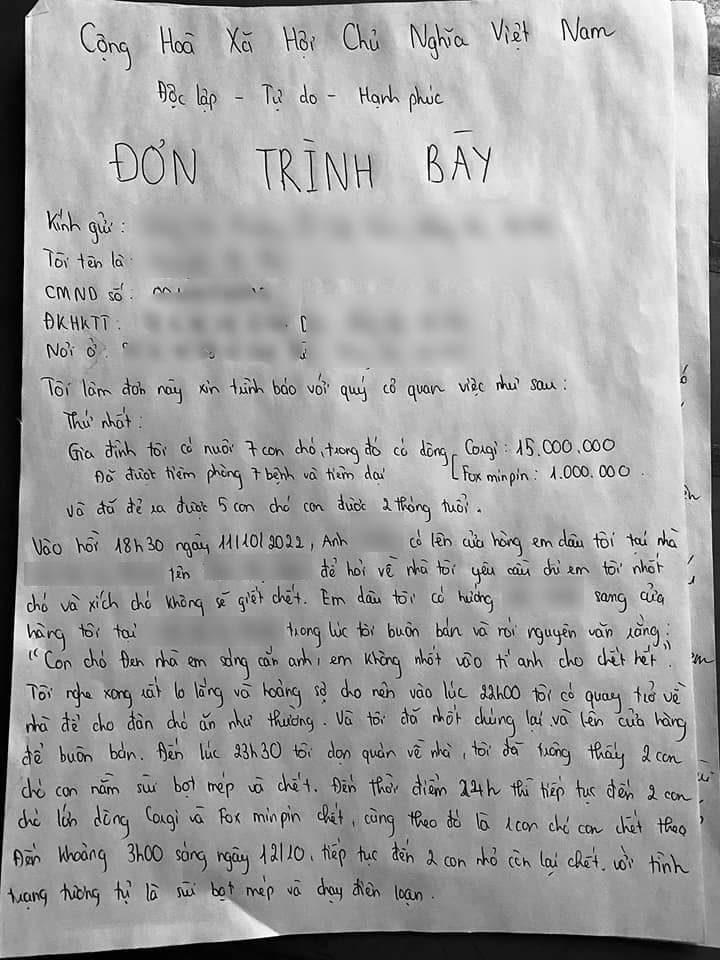 Cộng Hoà Xã Hội Chủ Nghĩa Việt Nam
Độc lập - Tự do - Hạnh phúc
ĐƠN TRÌNH BÀY
Kính gửi :
Tôi tên là
CMND số :
ĐKHKTT :
Nơi ở :
Tôi làm đơn này xin trình báo với quý cơ quan việc như sau :
Thứ nhất :
Gia đình tôi có nuôi 7 con chó, trong đó có dòng Corgi : 15.000.000
Đã được tiêm phòng 7 bệnh và tiêm dại Fox minpin : 1.000.000
và đã đẻ ra được 5 con chó con được 2 tháng tuổi .
Vào hồi 18h30 ngày 11/10/2022, Anh có lên cửa hàng em dâu tôi tại nhà
tên để hỏi về nhà tôi yêu cầu chị em tôi nhốt
chó và xích chó không sẽ giết chết. Em dâu tôi có hướng sang cửa
hàng tôi tại trong lúc tôi buôn bán và nói nguyên văn rằng :
"Con chó Đen nhà em sáng cắn anh, em không nhốt vào tí anh cho chết hết"
Tôi nghe xong rất lo lắng và hoảng sợ cho nên vào lúc 22h00 tôi có quay trở về
nhà để cho đàn chó ăn như thường. Và tôi đã nhốt chúng lại và lên cửa hàng
để buôn bán. Đến lúc 23h30 tôi dọn quán về nhà, tôi đã trông thấy 2 con
chó con nằm sùi bọt mép và chết. Đến thời điểm 24h thì tiếp tục đến 2 con
chó lớn dòng Corgi và Fox minpin chết, cùng theo đó là 1 con chó con chết theo
Đến khoảng 3h00 sáng ngày 12/10, tiếp tục đến 2 con nhỏ còn lại chết. với tình
trạng tương tự là sùi bọt mép và chạy điên loạn .